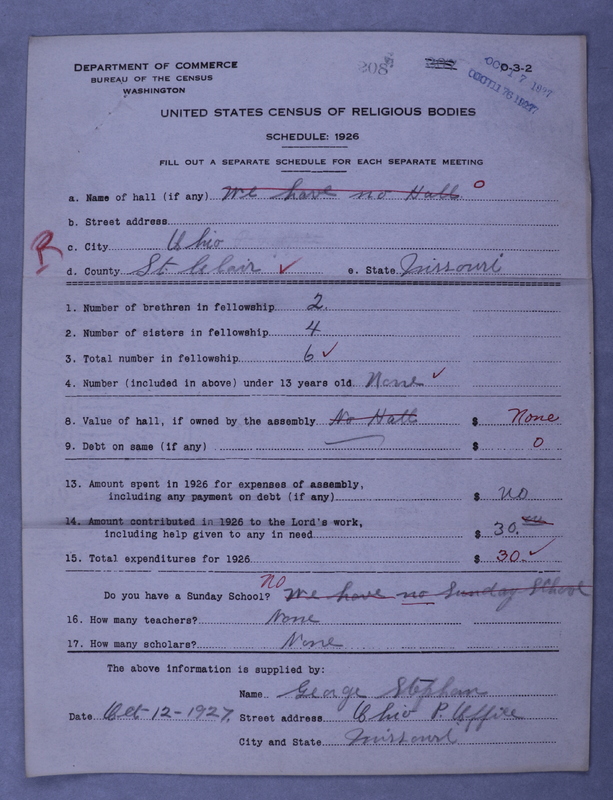 DEPARTMENT OF COMMERCE
BUREAU OF THE CENSUS
WASHINGTON
208
D-3-2
OCT 17 1927
UNITED STATES CENSUS OF RELIGIOUS BODIES
SCHEDULE: 1926
FILL OUT A SEPARATE SCHEDULE FOR EACH SEPARATE MEETING
a. Name of hall (if any) We have no Hall. 0
b. Street address
R c. City Ohio
d. County St. Clair ✓ e. State Missouri
1. Number of brethren in fellowship 2.
2. Number of sisters in fellowship 4
3. Total number in fellowship 6 ✓
4. Number (included in above) under 13 years old None ✓
8. Value of hall, if owned by the assembly No Hall $ None
9. Debt on same (if any) $ 0
13. Amount spent in 1926 for expenses of assembly,
including any payment on debt (if any) $ no
14. Amount contributed in 1926 to the Lord's work,
including help given to any in need $ 30.
15. Total expenditures for 1926 $ 30. ✓
no
Do you have a Sunday School? We have no Sunday School
16. How many teachers? None
17. How many scholars? None
The above information is supplied by:
Name George Stephan
Date Oct-12-1927. Street address Ohio P. Office
City and State Missouri